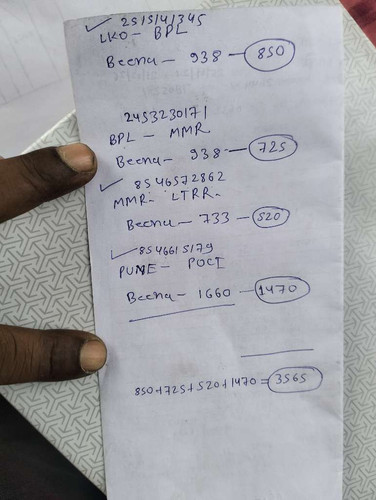 ✓ 2515141345
LKO - BPL
Beena - 938 - 850
2453230171
BPL - MMR.
Beena - 938 - 725
✓ 8546572862
MMR - LTRR.
Beena - 733 - 520
✓ 8546615179
PUNE - POCI
Beena - 1660 - 1470
850+725+520+1470 = 3565